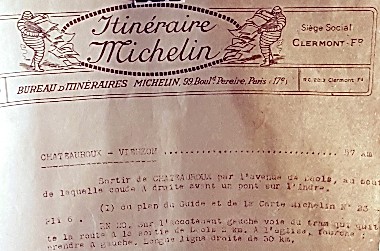 Itinéraire
Michelin
Siège Social
CLERMONT-Fᴰ
BUREAU D'ITINÉRAIRES MICHELIN, 99, Boulᵈ Pereire, Paris (17ᵉ)
CHATEAUROUX - VIERZON 57 km
Sortir de CHATEAUROUX par l'avenue de Déols, au bout
de laquelle coude à droite avant un pont sur l'Indre.
(2) du plan du Guide et de la Carte Michelin N°
Pli 6. EN NO. sur l'accotement gauche voie du tram, qui
te la route à la sortie de Déols 2 km. A l'église, fourche:
prendre à gauche. Longue ligne droite de 30 km.